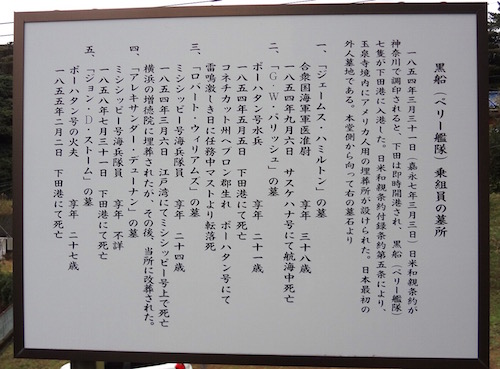 黒船（ペリー艦隊）乗組員の墓所
一八五四年三月三十一日（嘉永七年三月三日）日米和親条約が
神奈川で調印されると、下田は即時開港され、黒船（ペリー艦隊）
七隻が下田港に入港した。日米和親条約付録条約第五条により、
玉泉寺境内にアメリカ人用の埋葬所が設けられた。日本最初の
外人墓地である。本堂側から向って右の墓石より
一、「ジェームス・ハミルトン」の墓
合衆国海軍軍医准尉　享年　三十八歳
一八五四年九月六日　サスケハナ号にて航海中死亡
二、「G・W・パリッシュ」の墓
ポーハタン号水兵　享年　二十一歳
一八五四年五月五日　下田港にて死亡
コネチカット州ヘブロン郡生れ　ポーハタン号にて
雷鳴激しき日に任務中マストより転落死
三、「ロバート・ウィリアムズ」の墓
ミシシッピー号海兵隊員　享年　二十四歳
一八五四年三月六日　江戸湾にてミシシッピー号上で死亡
横浜の増徳院に埋葬されたが、その後、当所に改葬された。
四、「アレキサンダー・デューナン」の墓
ミシシッピー号海兵隊員　享年　不詳
一八五八年七月三十一日　下田港にて死亡
五、「ジョン・D・ストーム」の墓
ポーハタン号の火夫　享年　二十七歳
一八五五年二月二日　下田港にて死亡